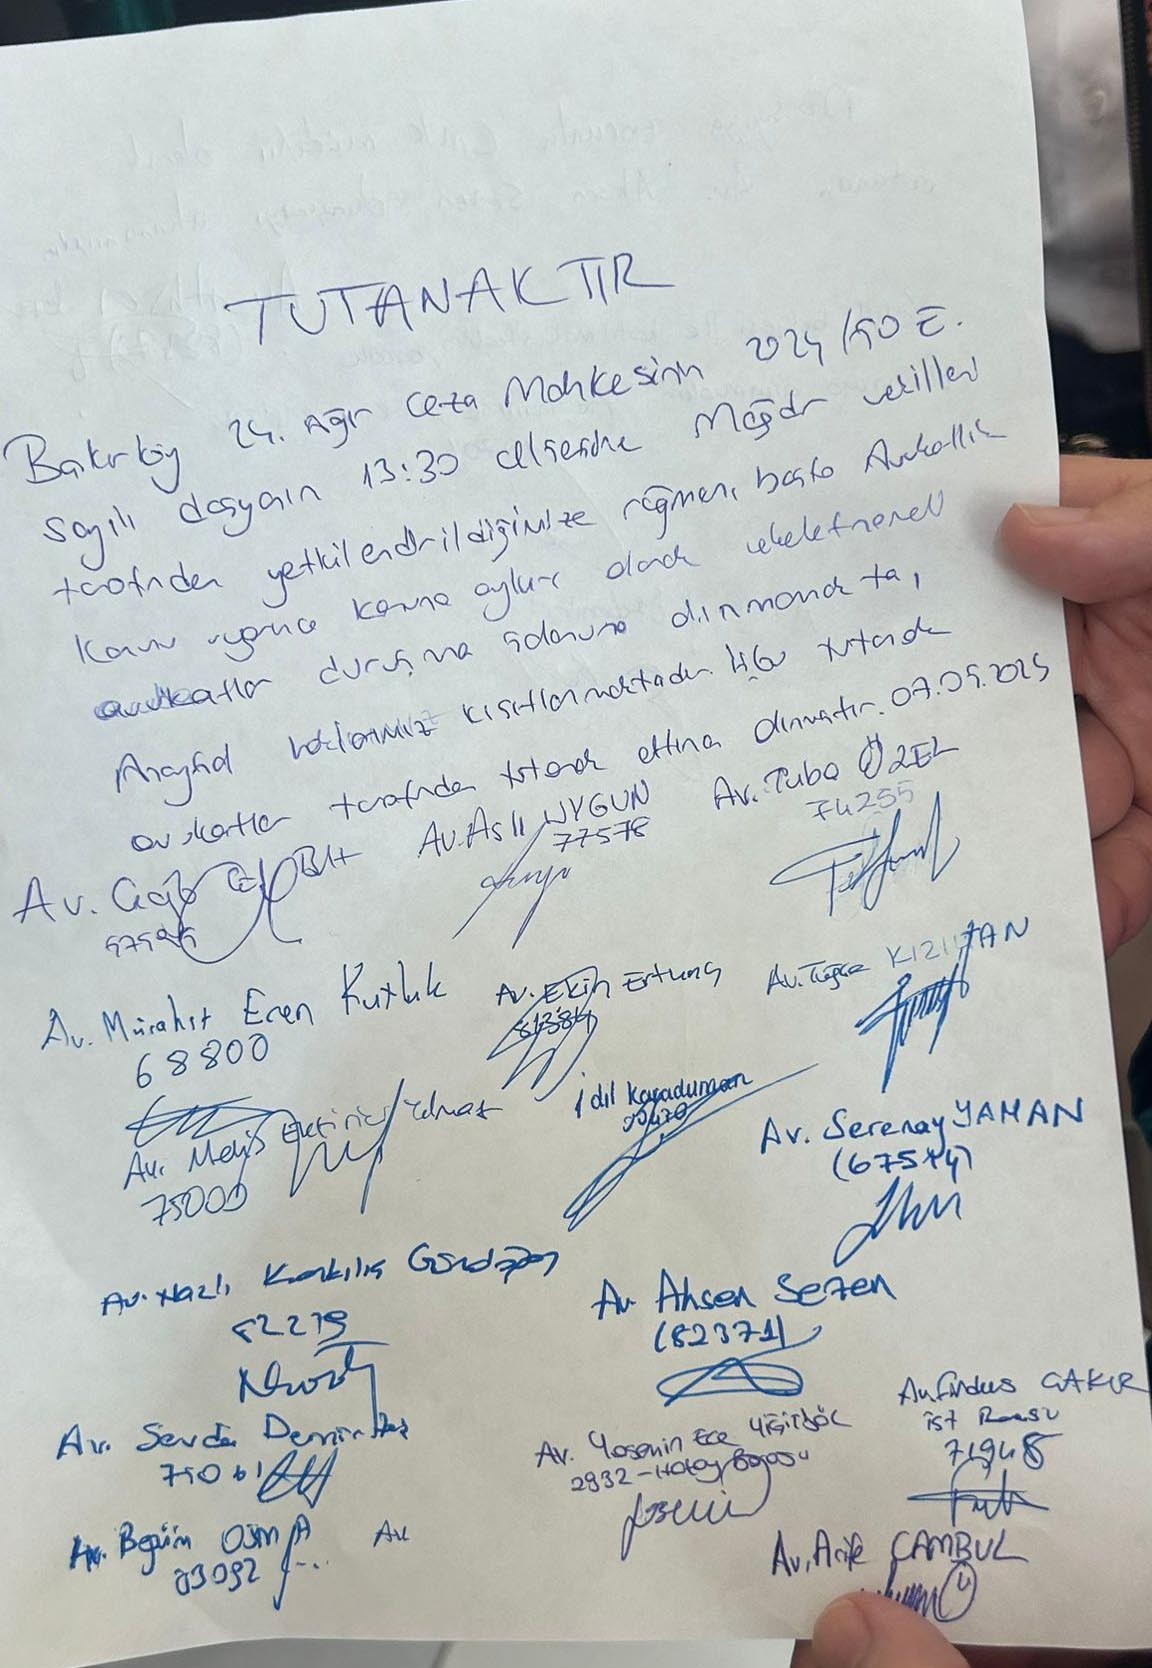 TUTANAKTIR
Bakırköy 24. Ağır Ceza Mahkesinin 2024/50 E.
sayılı dosyanın 13:30 celsesine Mağdur vekilleri
tarafından yetkilendirildiğimize rağmen, başta Avukatlık
Kanunu uyarınca kanuna aykırı olarak vekaletnameli
avukatlar duruşma salonuna alınmamakta,
Anayasal haklarımız kısıtlanmaktadır. İşbu tutanak
avukatlar tarafından tutanak altına alınmıştır. 07.05.2025
Av. Aslı UYGUN
77578
Av. Tuba ÖZEL
74255
Av. Mürahit Eren Kutluk
68800
Av. Ekin Ertunç
81384
Av. Tuğçe KIZILTAN
Av. Melis Yılmaz
75000
İdil Karaduman
Av. Serenay YAMAN
Av. Nazlı Korkılıç
82279
Av. Ahsen Sezen
(82371)
Av. Sevda Demirtaş
Av. Yasemin Ece Yiğitböl
2932-Hatay Barosu
Av. Findus ÇAKIR
İst Barosu
Av. Begüm OSMA
83092
Av
Av. Arife ÇAMBUL